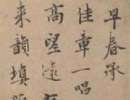 早春承
佳章一唱
高望远
来韻填